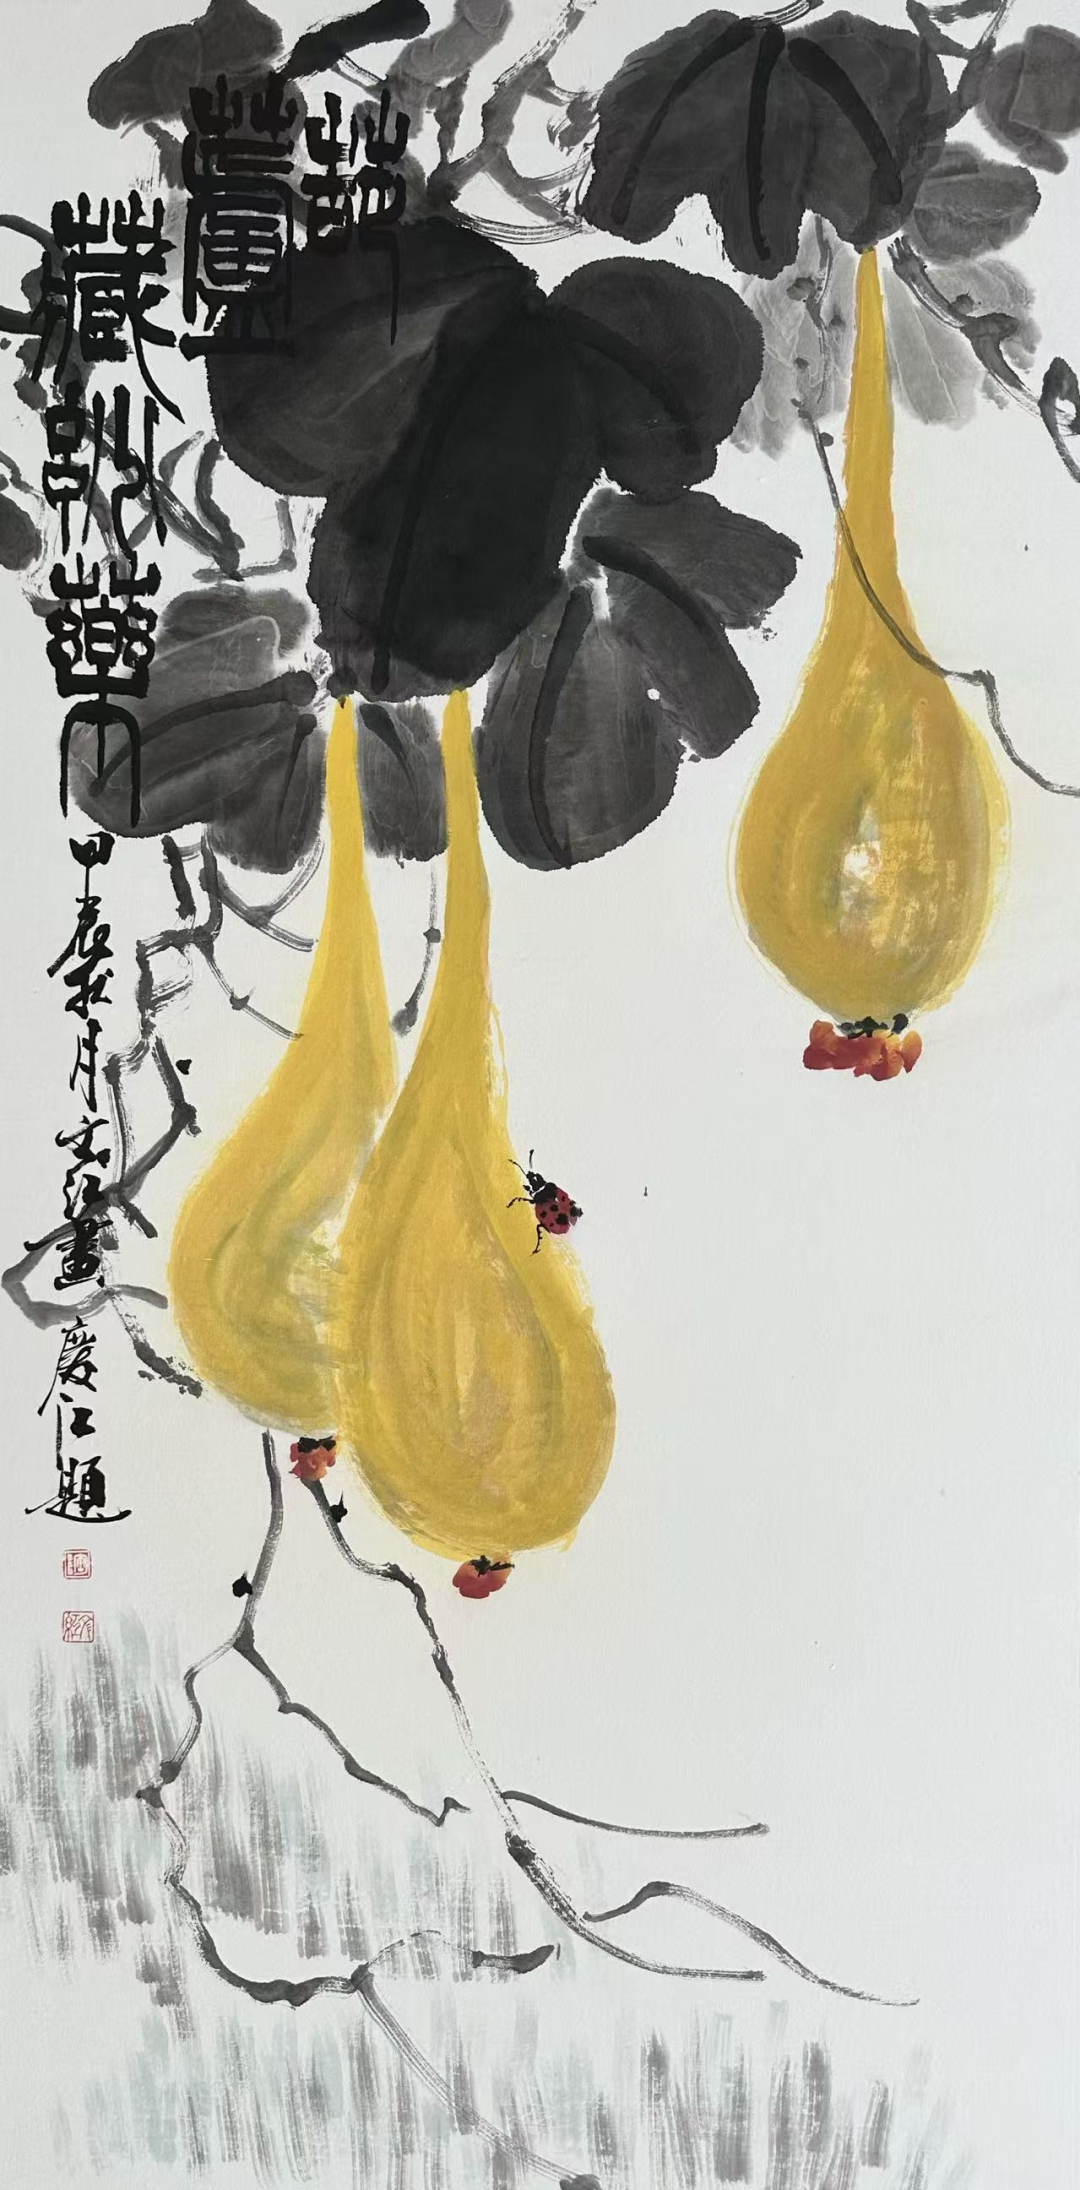 葫
蘆
藏妙藥 甲辰秋月文江畫 慶江題